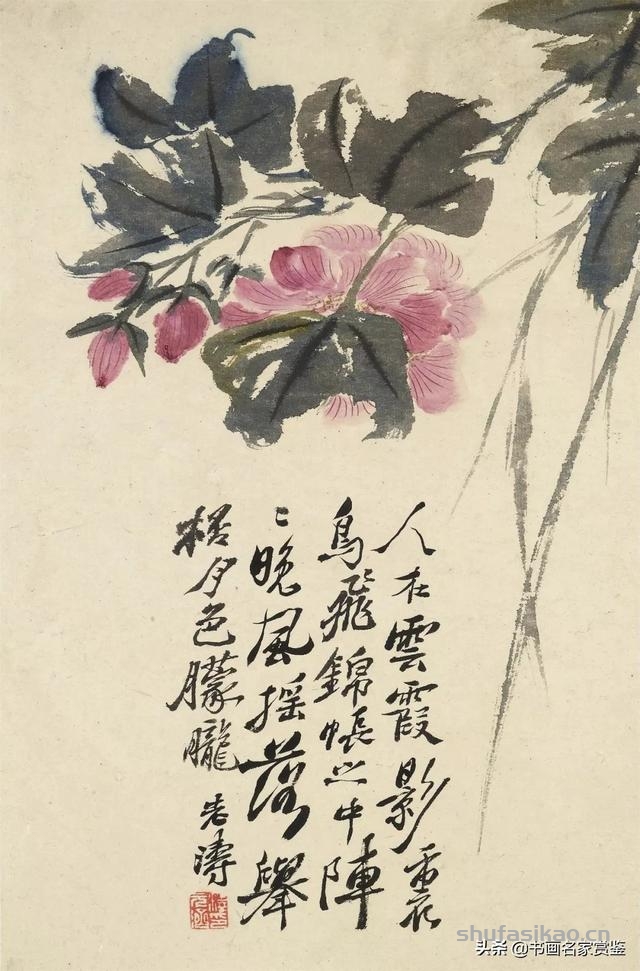 人在雲霞影裏
鳥飛錦帳之中陣
〻晚風搖落舉
桮夕色朦朧
老濤
shufasikao.cn
头条 @书画名家赏鉴